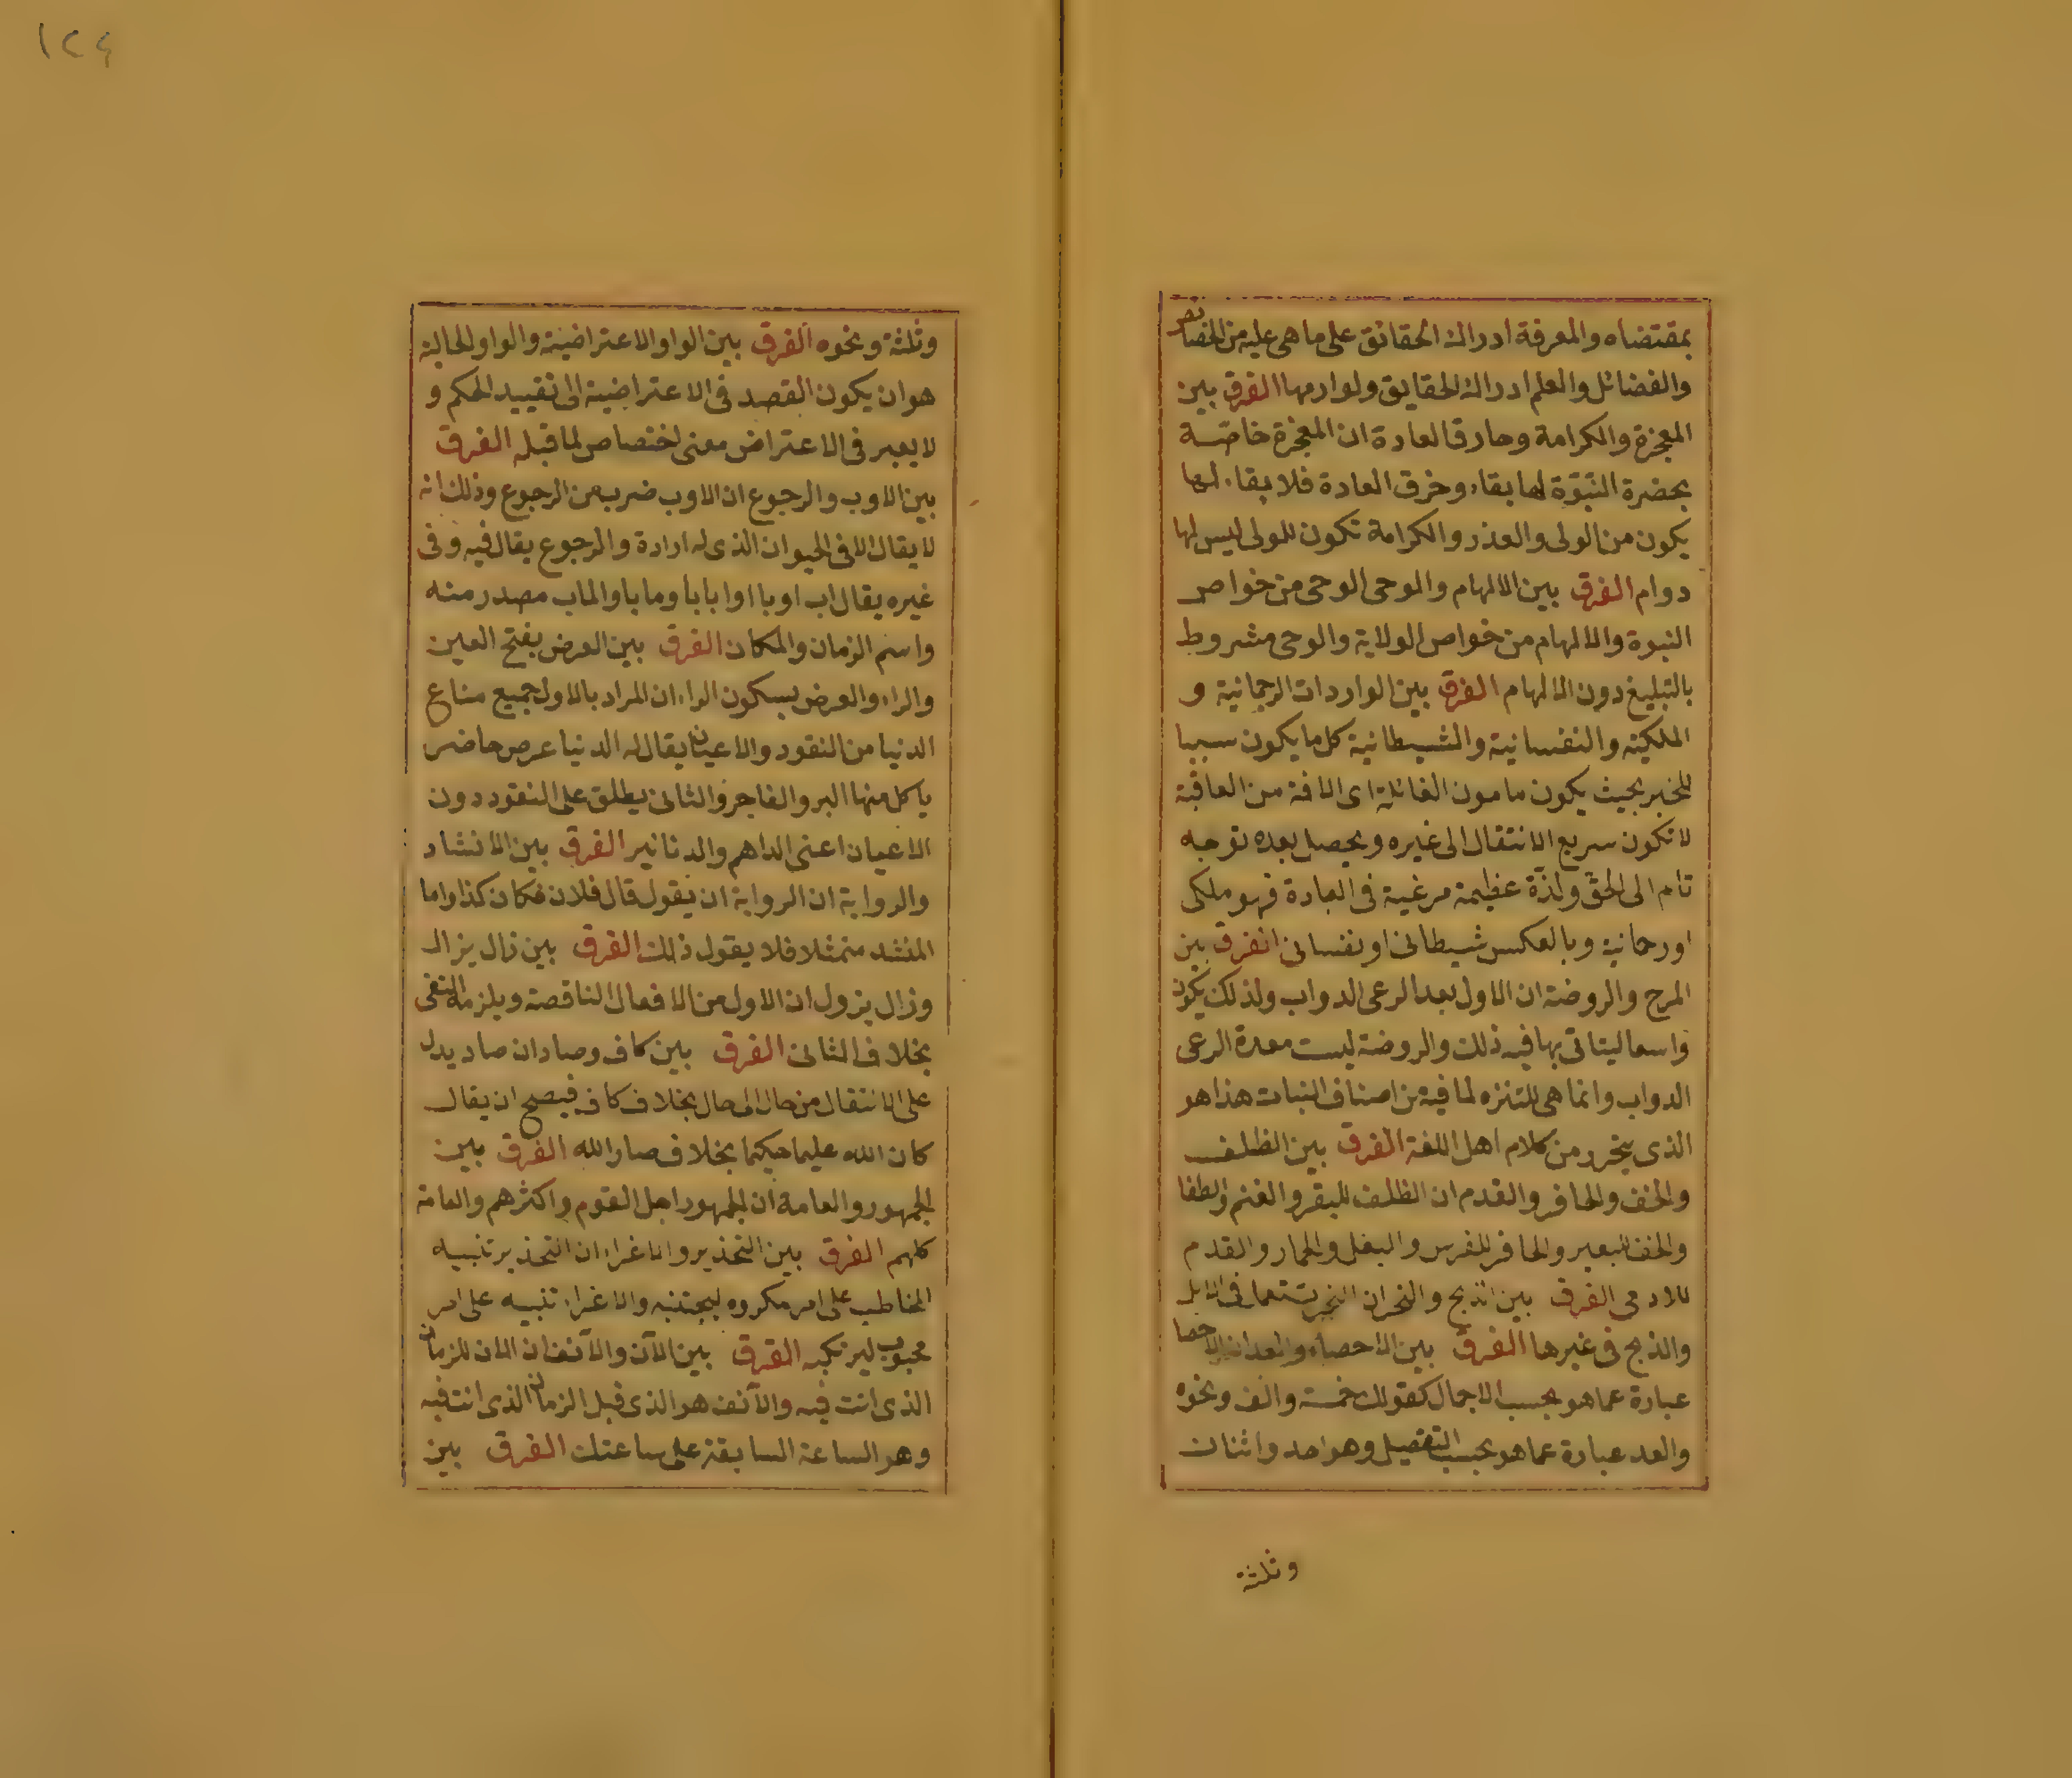 بمقتضاه والمعرفة ادراك الحقائق على ما هى عليه من الخصائص
والفضائل والعلم ادراك الحقايق ولوازمها الفرق بين
المعجزة والكرامة وخارق العادة ان المعجزة خاصّة
بحضرة النبّوة لها بقاء وخرق العادة فلا بقاء لها
يكون من الولى والعذر والكرامة تكون للولى ليس لها
دوام الفرق بين الالهام والوحى الوحى من خواص
النبوة والالهام من خواص الولاية والوحى مشروط
بالتبليغ دون الالهام الفرق بين الواردات الرحمانية و
الملكيته والنفسانية والشيطانية كل ما يكون سببا
للخير بحيث يكون مامون الغائلة اى الافة من العاقبة
لا تكون سريع الانتقال الى غيره ويحصل بعده توجه
تام الى الحق ولذّة عظيمة مرغبة فى العبادة فهو ملكى
او رحمانية وبالعكس شيطانى او نفسانى الفرق بين
المرج والروضة ان الاول بعد الرعى الدواب ولذلك يكون
واسعا ليتاتى بها فيه ذلك والروضة ليست معدة الرعى
الدواب وانما هى للتنزه لما فيه من اصناف النبات هذا هو
الذى يتحرر من كلام اهل اللغة الفرق بين الظلف
والخف والحافر والقدم ان الظلف للبقر والغنم والظفا
والخف للبعير والحافر للفرس والبغل والحمار والقدم
للادمى الفرق بين الذبح والنحر ان النحر يستعمل فى الابل
والذبح فى غيرها الفرق بين الاحصاء والعد ان الاحصا
عبارة عما هو بحسب الاجمال كقولك خمسة والف ونحوه
والعد عبارة عما هو بحسب التفصيل وهو احد واثنان
وثلثة
١٢٤
وثلثة ونحوه الفرق بين الواو الاعتراضية والواو الحالية
هو ان يكون القصد فى الاعتراضية الى تقييد الحكم و
لا يعبر فى الاعتراض معنى اختصاص لما قبله الفرق
بين الاوب والرجوع ان الاوب ضرب من الرجوع وذلك انه
لا يقال الا فى الحيوان الذى له ارادة والرجوع يقال فيه وفى
غيره يقال اب اوبا اوا بابا وما با والماب مصدر منه
واسم الزمان والمكان الفرق بين العرض بفتح العين
والراء والعرض بسكون الراء ان المراد بالاول جميع متاع
الدنيا من النقود والاعيان يقال له الدنيا عرض حاضر
ياكل منها البر والفاجر والثانى يطلق على النقود دون
الاعيان اعنى الداهم والدنانير الفرق بين الانشاد
والرواية ان الرواية ان يقول قال فلان مكان كذا واما
المنشد متمثلا فلا يقول ذلك الفرق بين زال يزال
وزال يزول ان الاول من الافعال الناقصة ويلزمه النفى
بخلاف الثانى الفرق بين كان وصار ان صار يدل
على الانتقال من حال الى حال بخلاف كان فيصح ان يقال
كان الله عليما حكيما بخلاف صار الله الفرق بين
الجمهور والعامة ان الجمهور اجل القوم واكثرهم والعامة
كلهم الفرق بين التحذير والاغراء ان التحذير تنبيه
المخاطب على امر مكروه ليجتنبه والاغراء تنبيه على امر
محبوب ليرتكبه الفرق بين الآن والآنف ان الان للزمان
الذى انت فيه والآنف هو الذى قبل الزمان الذى انت فيه
وهو الساعة السابقة على ساعتك الفرق بين